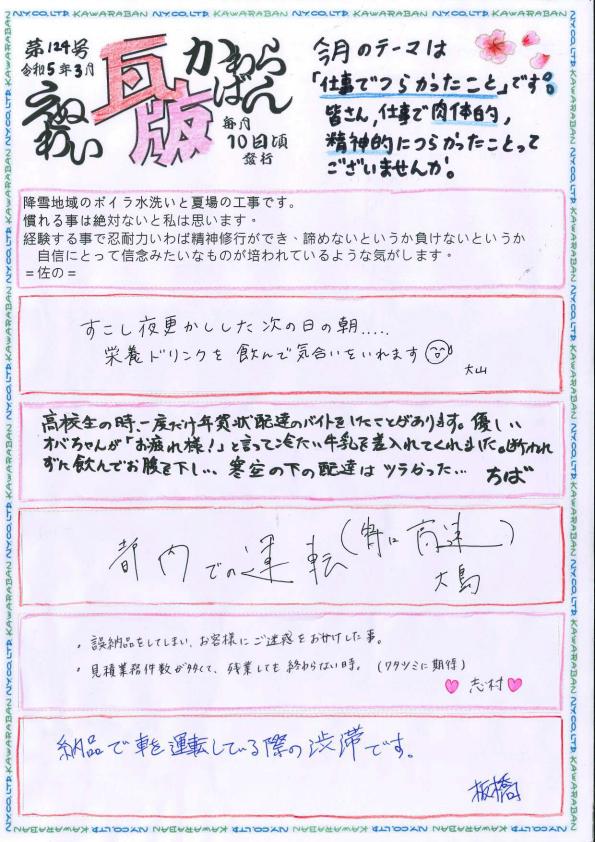 第124号
令和5年3月
えぬわい
瓦版
かわらばん
毎月
10日頃
発行
今月のテーマは
「仕事でつらかったこと」です。
皆さん,仕事で肉体的,
精神的につらかったことって
ございませんか。
降雪地域のボイラ水洗いと夏場の工事です。
慣れる事は絶対ないと私は思います。
経験する事で忍耐力いわば精神修行ができ、諦めないというか負けないというか
自信にとって信念みたいなものが培われているような気がします。
=佐の=
すこし夜更かしした次の日の朝.....
栄養ドリンクを飲んで気合いをいれます
大山
高校生の時、一度だけ年賀状配達のバイトをしたことがあります。優しい
オバちゃんが「お疲れ様!」と言って冷たい牛乳を差入れてくれました。断われ
ずに飲んでお腹を下し、寒空の下の配達はツラかった… ちば
都内での運転(特に高速)
大島
・誤納品をしてしまい、お客様にご迷惑をおかけした事。
・見積業務件数が多くて、残業しても終わらない時。(ワタツミに期待)
志村
納品で車を運転している際の渋滞です。
板橋
N.Y.CO.,LTD. KAWARABAN